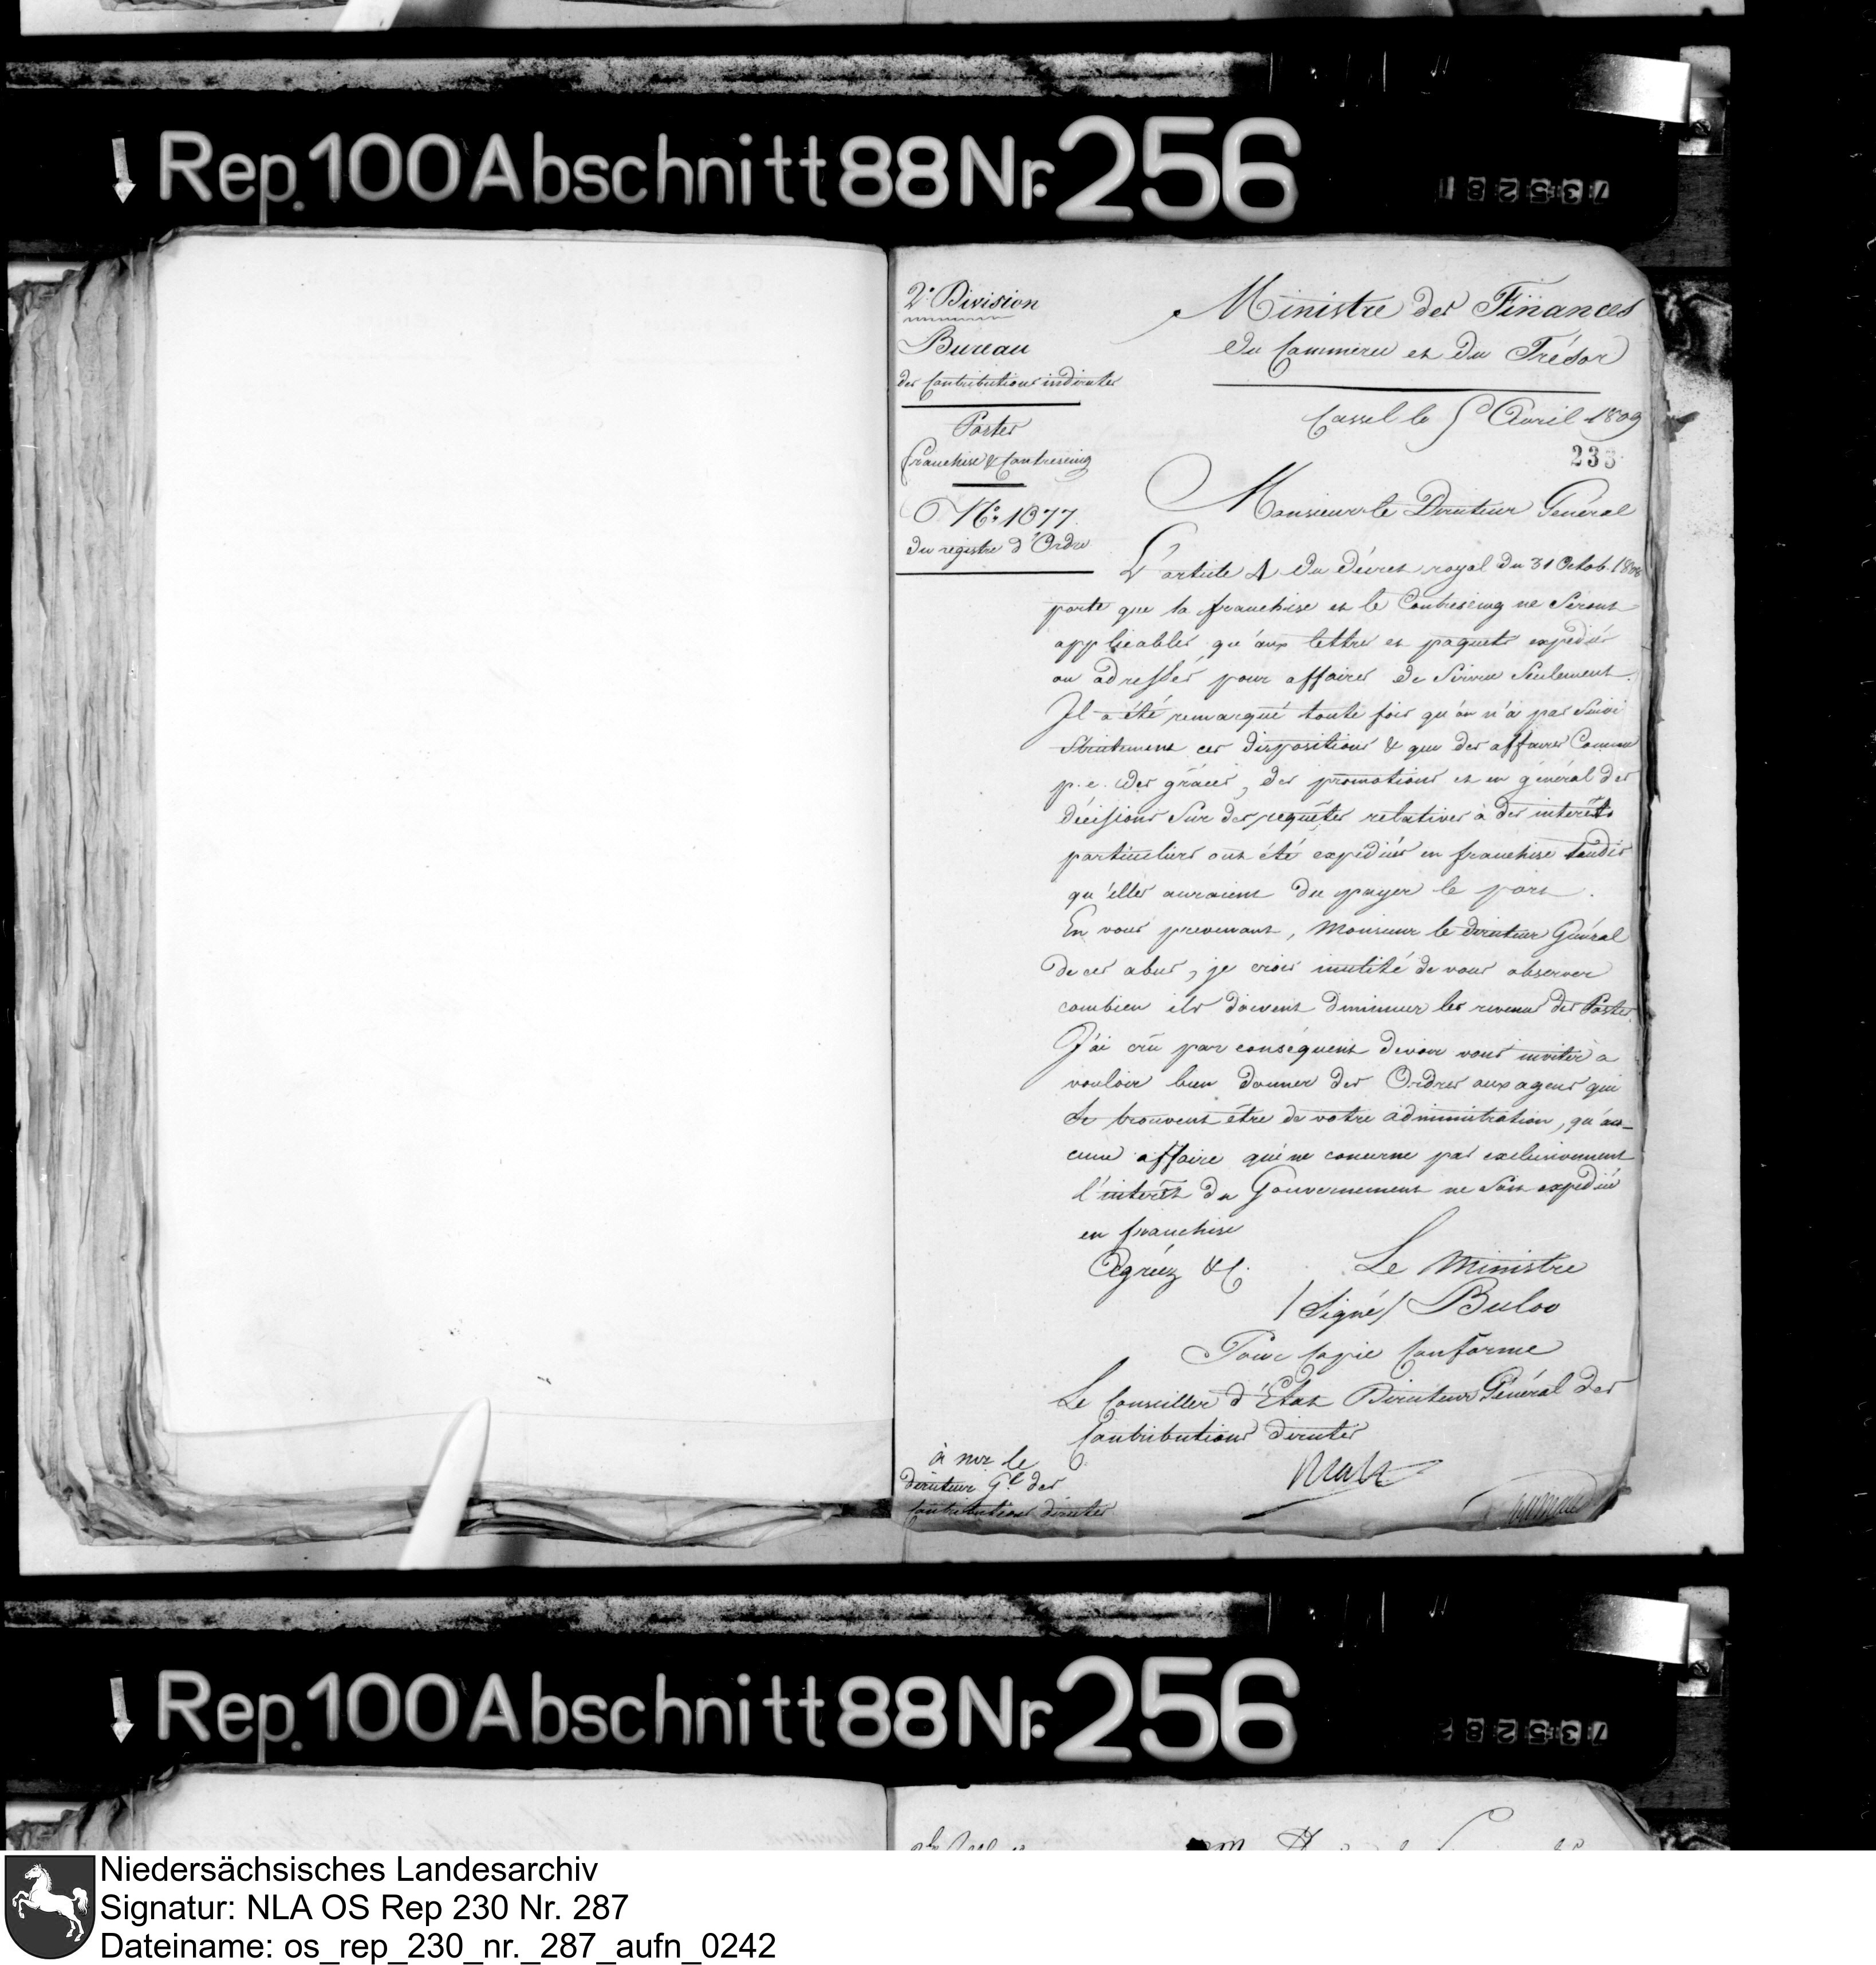 Rep. 100 Abschnitt 88 Nr. 256
735281
2.e Division
Bureau
des Contributions indirectes
Postes
franchise & Contreseing
N.° 1077.
du registre d'Ordre
Ministre des Finances
du Commerce et du Trésor
Cassel le 5 Avril 1809
233
Monsieur le Directeur Général
L'article 4 du décret royal du 31 Octob. 1808
porte que la franchise et le Contreseing ne Seront
applicables qu'aux lettres et paquets expediés
ou adressés pour affaires de Service Seulement.
Il a été remarqué toute fois qu'on n'a pas Suivi
Strictement ces dispositions & que des affaires Comme
p. e. des grâces, des promotions et en général des
décisions Sur des requêtes relatives à des interêts
particuliers ont été expediées en franchise tandis
qu'elles auraient du payer le port.
En vous prevenant, Monsieur le directeur Général
de ces abus, je crois inutile de vous observer
combien ils doivent diminuer les revenus des Postes.
J'ai crû par conséquent devoir vous inviter à
vouloir bien donner des Ordres aux agens qui
Se trouvent être de votre administration, qu'au-
cune affaire qui ne concerne pas exclusivement
l'interêt du Gouvernement ne Soit expediée
en franchise
Agréez &c.
Le Ministre
/Signé/ Bulow
Pour Copie Conforme
Le Conseiller d'État Directeur Général des
Contributions directes
à mr le
directeur G.l des
Contributions directes
Rep. 100 Abschnitt 88 Nr. 256
735282
Niedersächsisches Landesarchiv
Signatur: NLA OS Rep 230 Nr. 287
Dateiname: os_rep_230_nr._287_aufn_0242